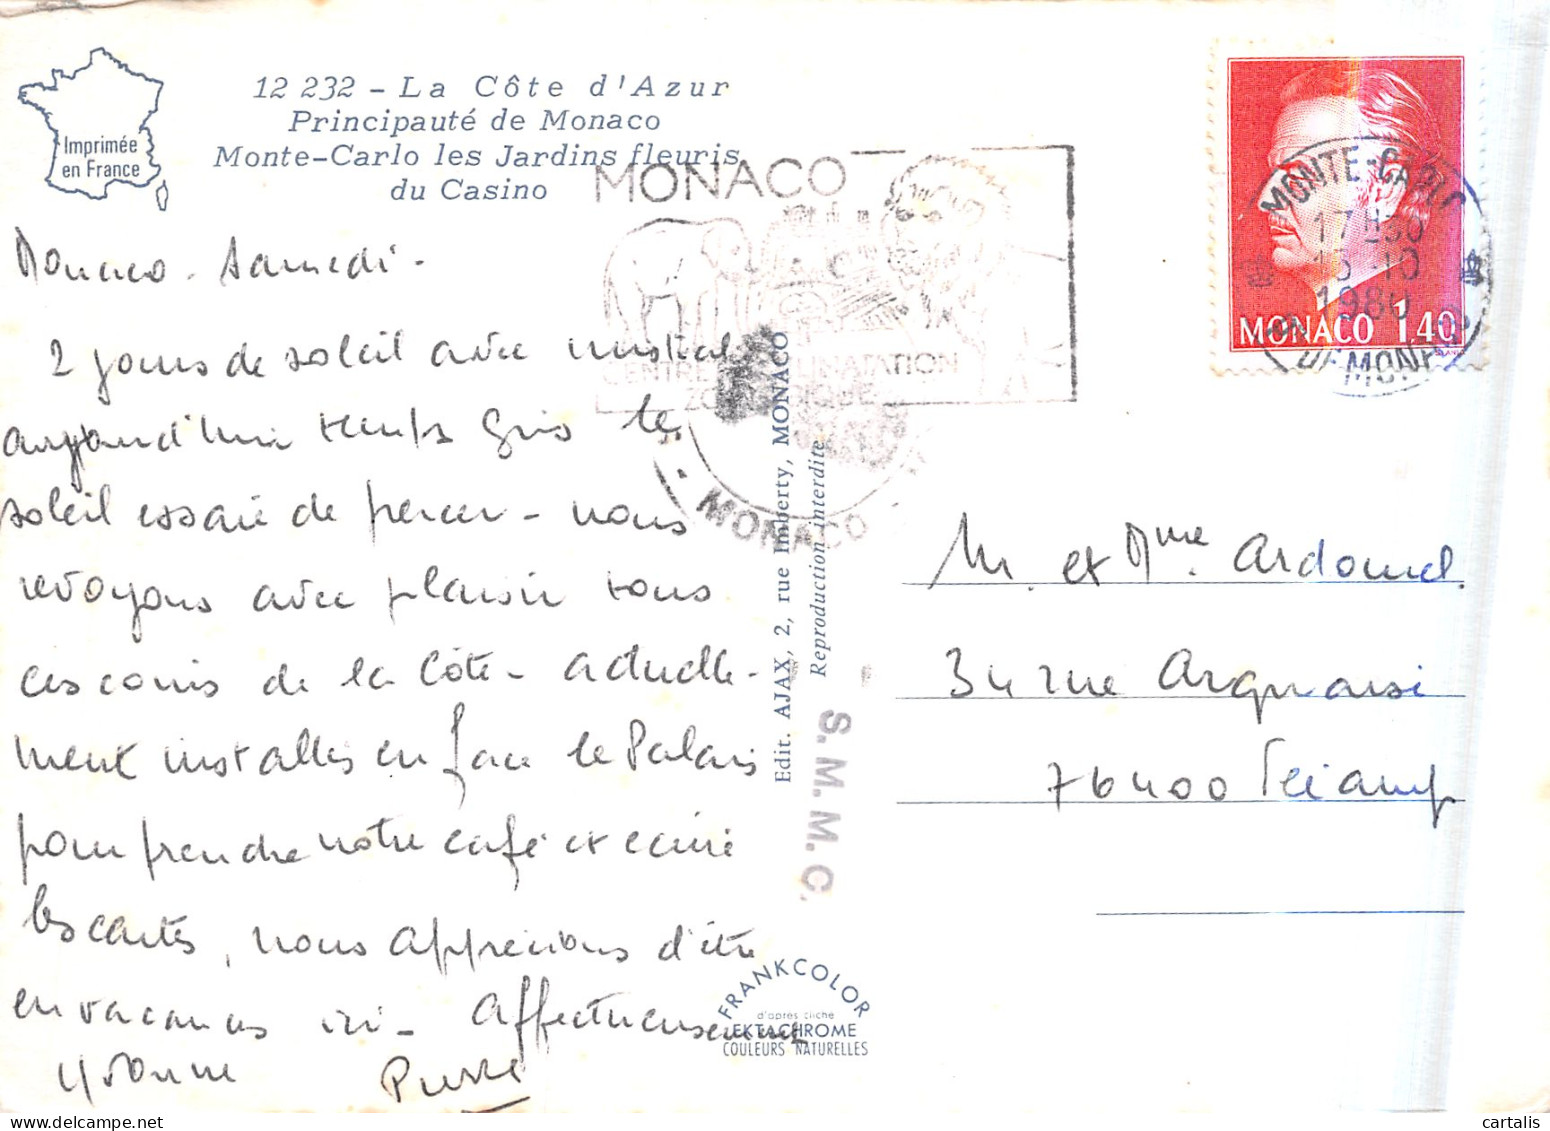 Imprimée
en France
12 232 - La Côte d'Azur
Principauté de Monaco
Monte-Carlo les Jardins fleuris
du Casino
MONACO
CENTRE D'ACCLIMATATION
ZOOLOGIQUE
MONACO
MONTE-CARLO
17H30
13-10
1980
DE MONACO
MONACO 1,40
Monaco - Samedi -
2 jours de soleil avec mistral
aujourd'hui temps gris le
soleil essaie de percer - nous
revoyons avec plaisir tous
ces coins de la Côte - actuelle-
ment installés en face le Palais
pour prendre notre café et écrire
les cartes, nous apprécions d'être
en vacances ici - Affectueusement
Yvonne Pierre
Edit. AJAX, 2, rue Imberty, MONACO
Reproduction interdite
S.M.M.C.
FRANKCOLOR
d'après cliché
EKTACHROME
COULEURS NATURELLES
M. et Mme Ardouel.
34 rue Arquaisi
76400 Fécamp
delcampe.net
cartalis